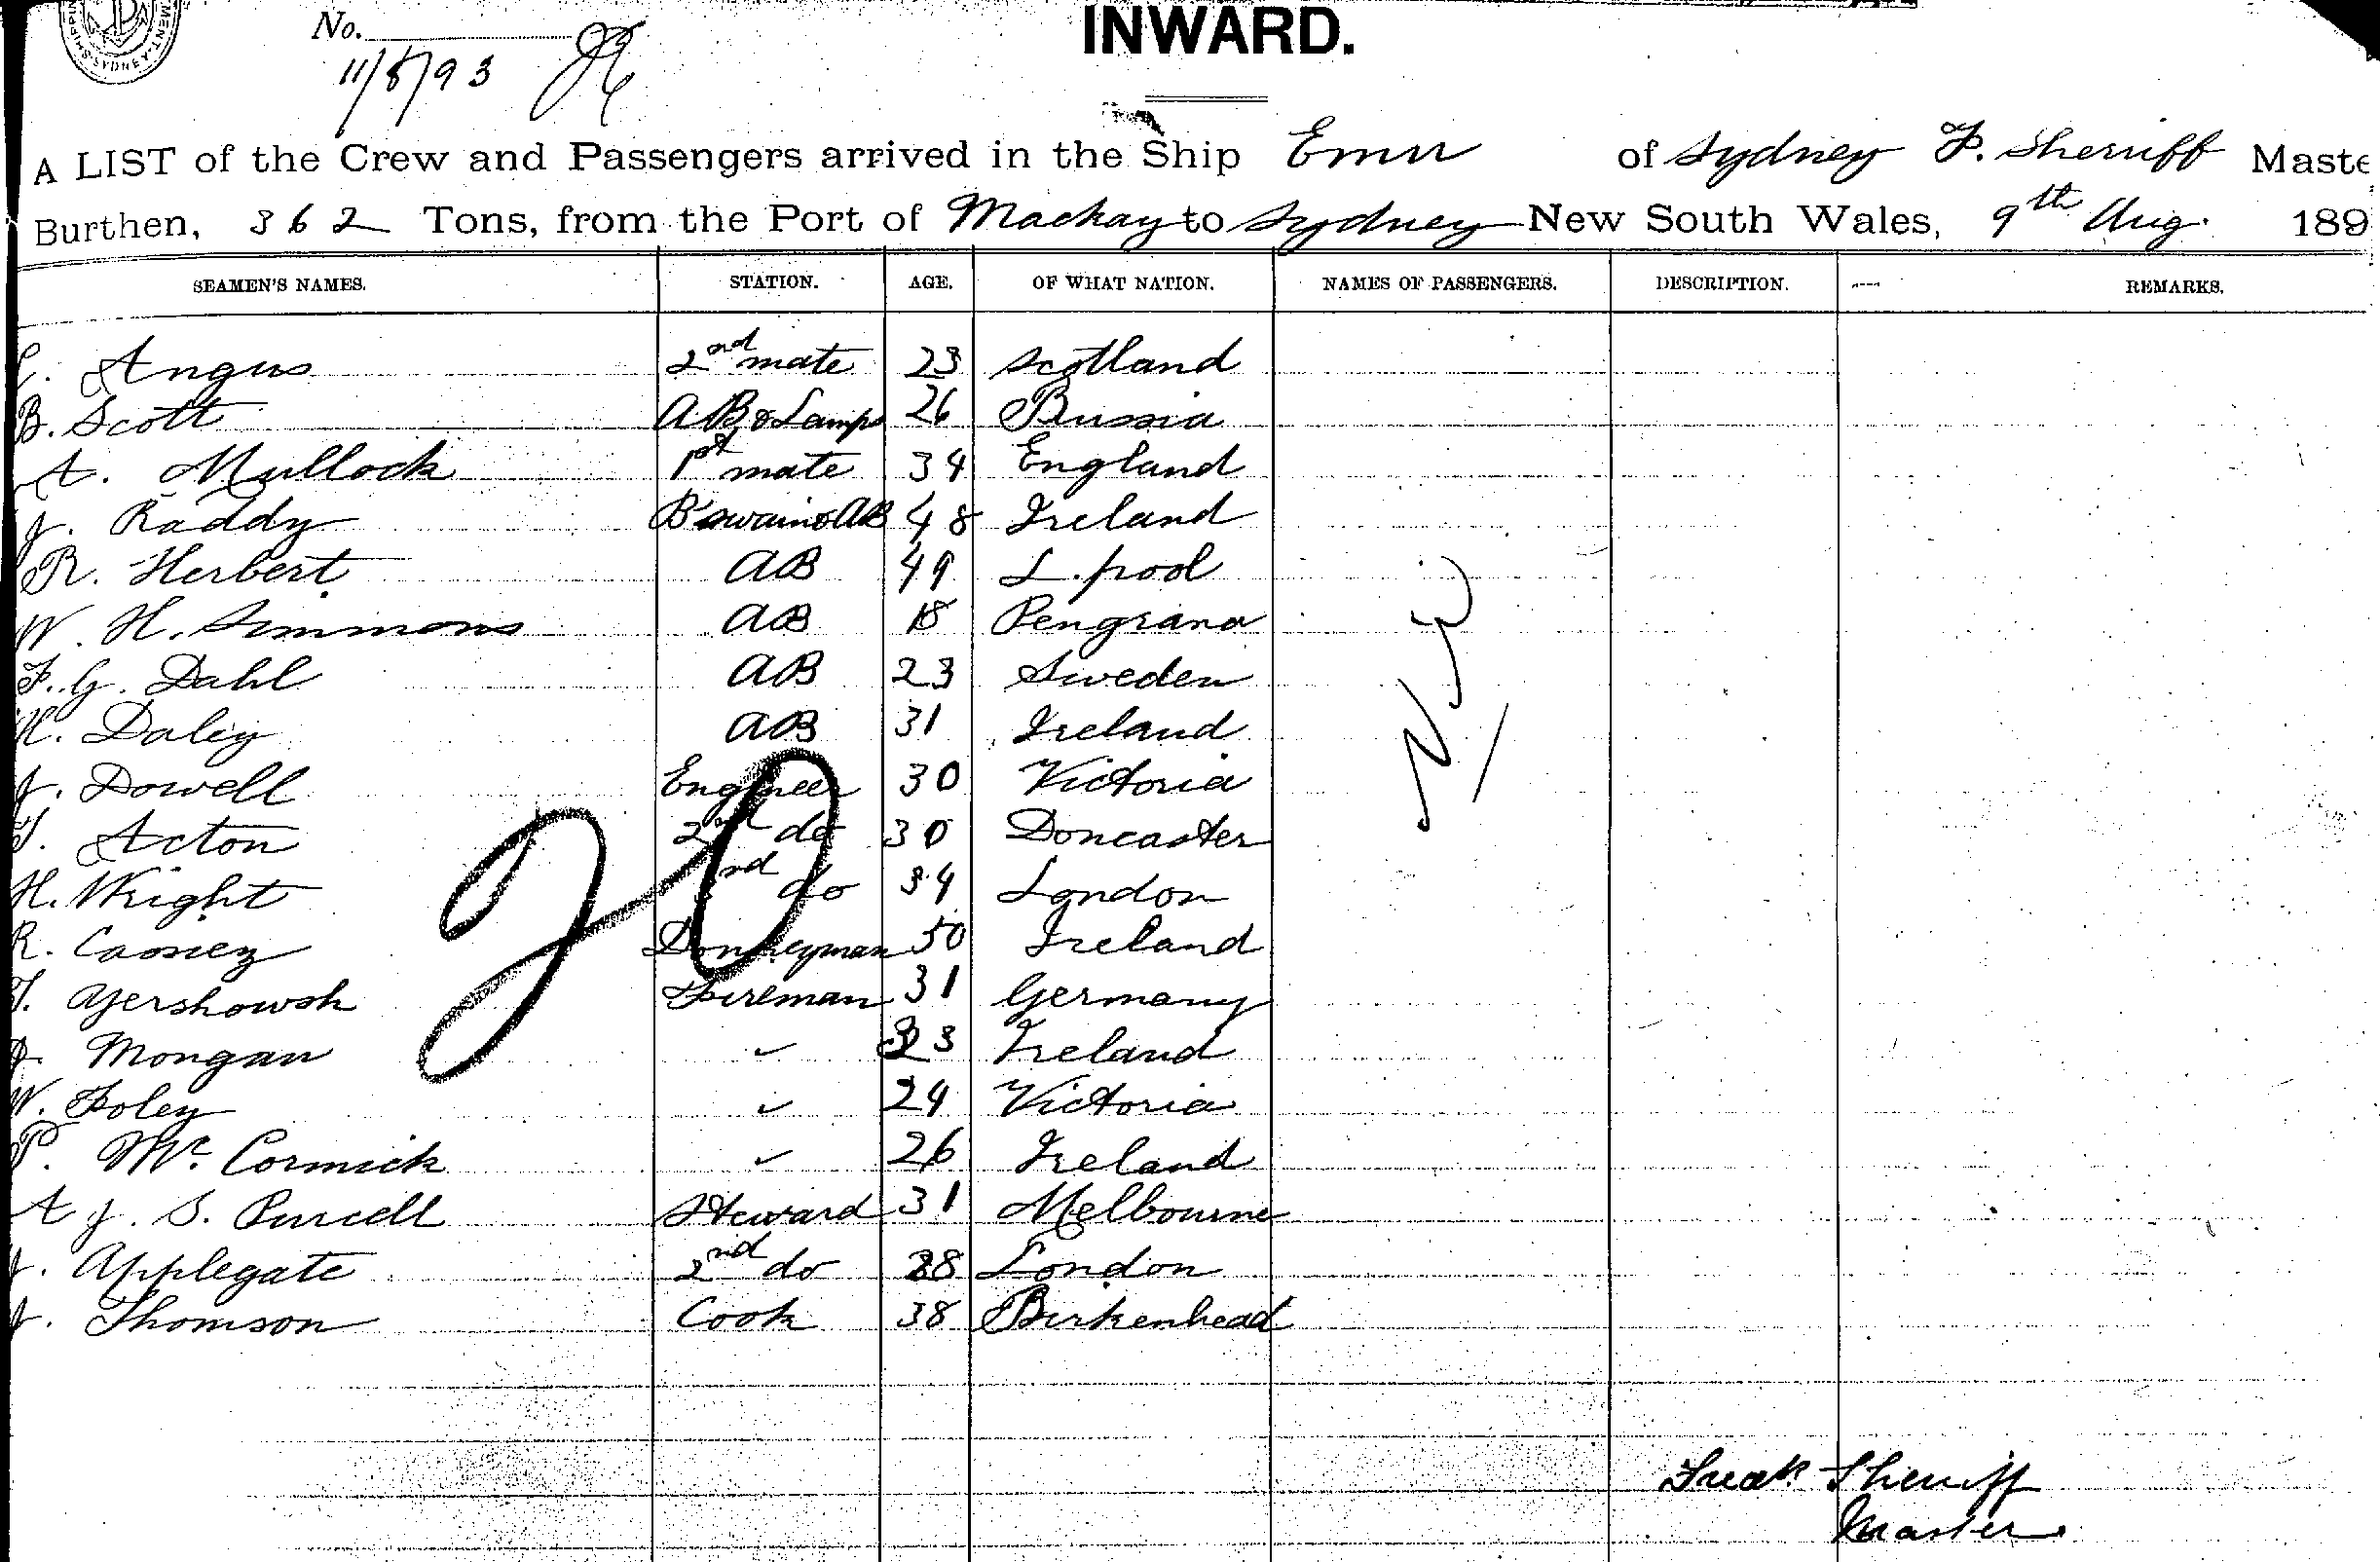 No.
11/8/93
INWARD.
A LIST of the Crew and Passengers arrived in the Ship Emu of Sydney F. Sherriff Maste
Burthen, 362 Tons, from the Port of Mackay to Sydney New South Wales, 9th Aug. 189
SEAMEN'S NAMES. STATION. AGE. OF WHAT NATION. NAMES OF PASSENGERS. DESCRIPTION. REMARKS.
Angus 2nd mate 23 Scotland
B. Scott AB & Lamps 26 Russia
A. Mullock 1st mate 34 England
J. Raddy B'swain & AB 48 Ireland
R. Herbert AB 49 L.pool
W. H. Simmons AB 18
F. G. Dahl AB 23 Sweden
H. Daley AB 31 Ireland
J. Dowell Engineer 30 Victoria
T. Acton 2nd do 30 Doncaster
H. Wright rd do 34 London
R. Donkeyman 50 Ireland
Fireman 31 Germany
J. Mongan 23 Ireland
W. Foley 24 Victoria
P. Mc. Cormick 26 Ireland
A J. S. Purcell Steward 31 Melbourne
J. Applegate 2nd do 28 London
J. Thomson Cook 38 Birkenhead
Nil
20
Sherriff
Master